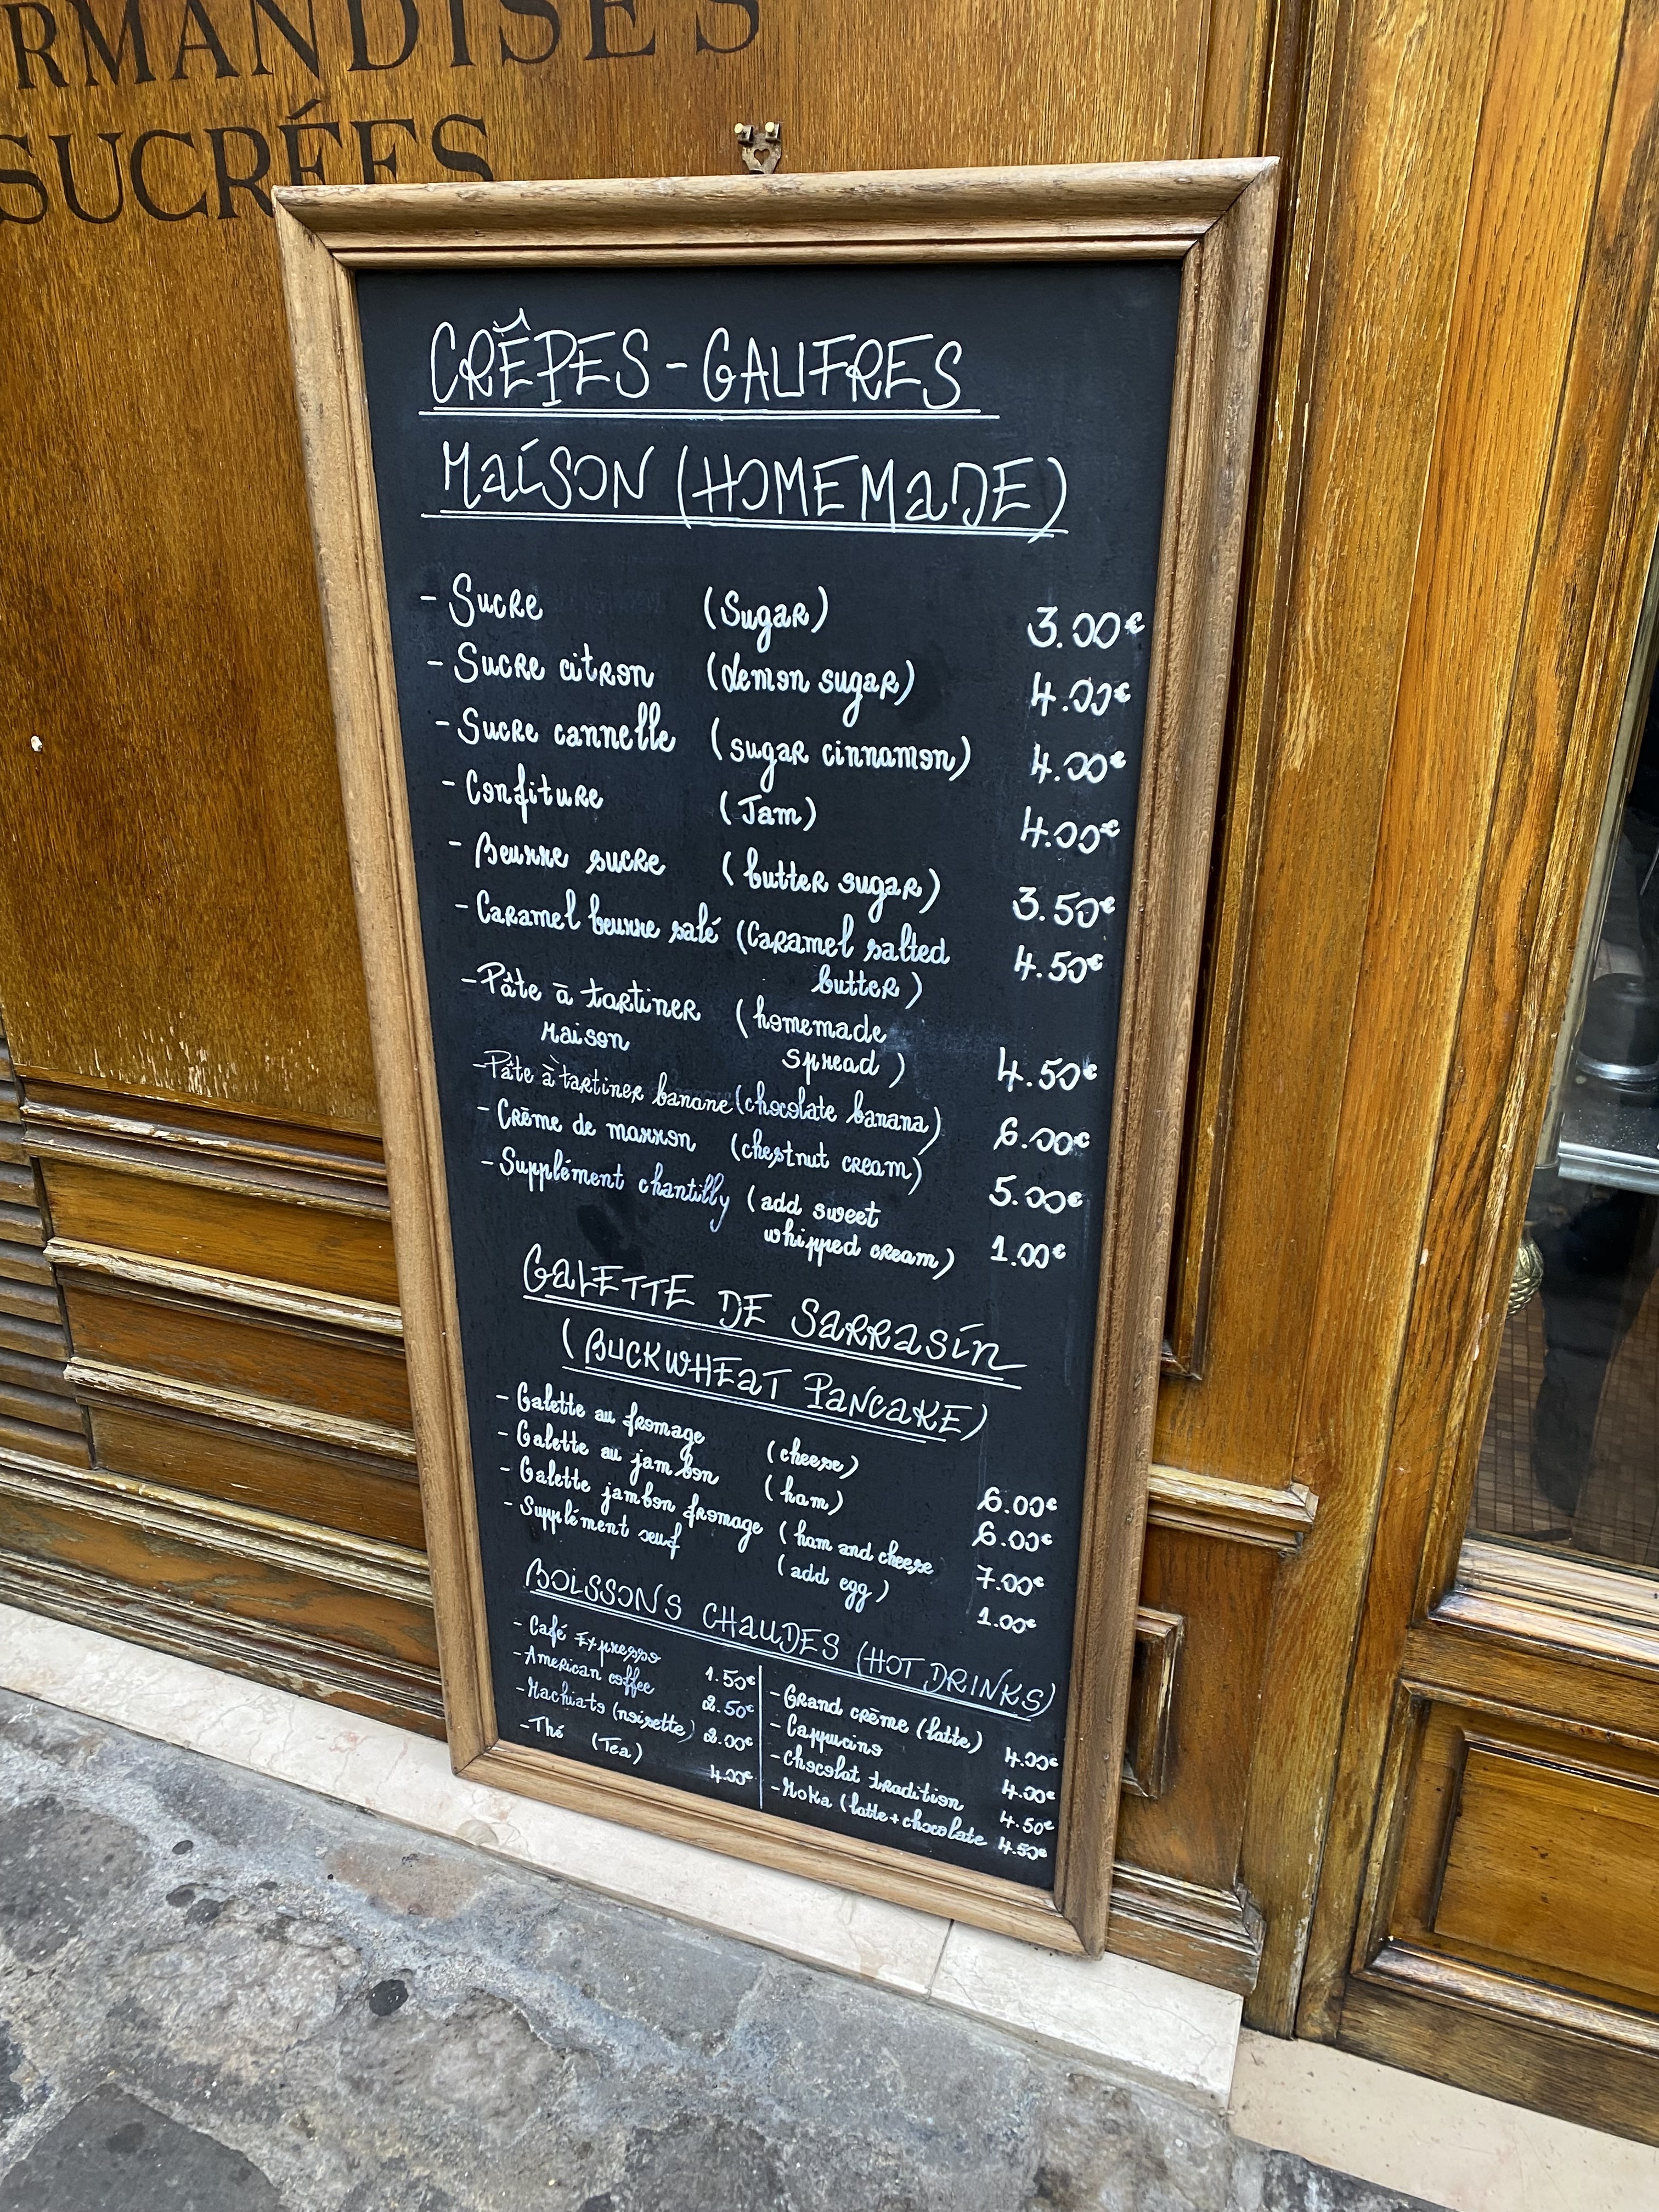 RMANDISES
SUCRÉES
CRÊPES - GAUFRES
MAÍSON (HOMEMADE)
- Sucre (Sugar) 3.00€
- Sucre citron (lemon sugar) 4.00€
- Sucre cannelle (sugar cinnamon) 4.00€
- Confiture (Jam) 4.00€
- Beurre sucre (butter sugar) 3.50€
- Caramel beurre salé (Caramel salted 4.50€
butter)
- Pâte à tartiner (homemade
Maison spread) 4.50€
- Pâte à tartiner banane (chocolate banana) 6.00€
- Crème de marron (chestnut cream) 5.00€
- Supplément chantilly (add sweet
whipped cream) 1.00€
GALETTE DE SARRASÍN
(BUCKWHEAT PANCAKE)
- Galette au fromage (cheese) 6.00€
- Galette au jambon (ham) 6.00€
- Galette jambon fromage (ham and cheese 7.00€
- Supplément œuf (add egg) 1.00€
BOISSONS CHAUDES (HOT DRINKS)
- Café Expresso 1.50€
- American coffee 2.50€
- Machiato (noisette) 2.00€
- Thé (Tea) 4.00€
- Grand crème (latte) 4.00€
- Cappucino 4.00€
- Chocolat tradition 4.50€
- Moka (latte + chocolate 4.50€